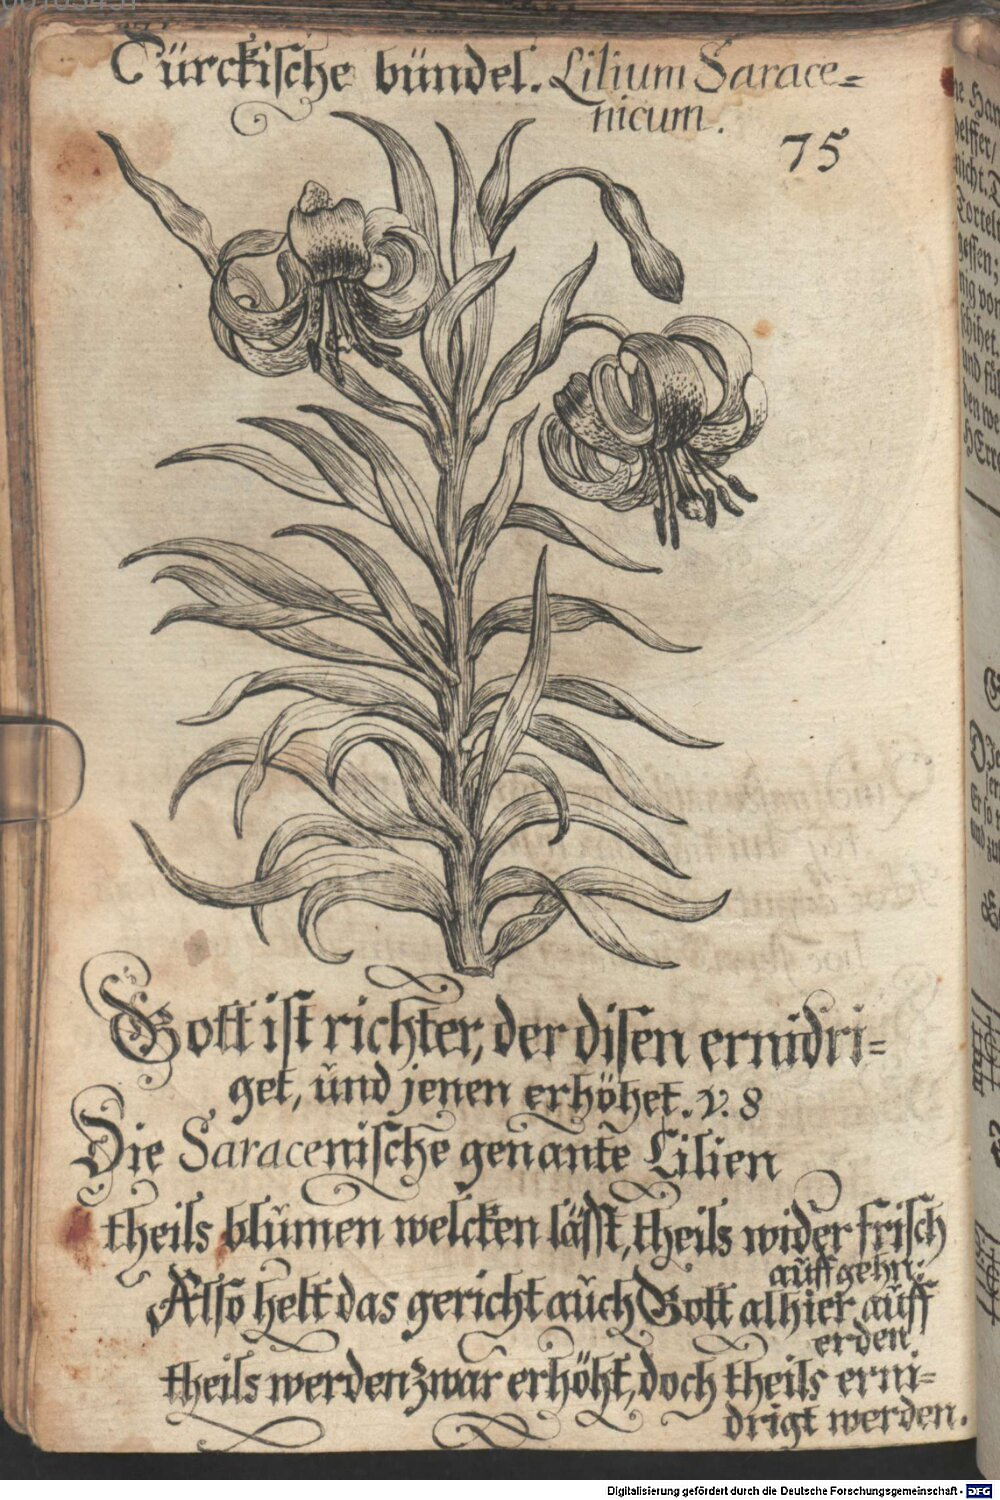 Türckische bündel. Lilium Sarace=
nicum.
75
Gott ist richter, der disen ernidri=
get, und jenen erhöhet. v. 8
Die Saracenische genante Lilien
theils blumen welcken läßt, theils wider frisch
auffgehn:
Also helt das gericht auch Gott alhier auff
erden
theils werden zwar erhöht, doch theils erni=
drigt werden.
Digitalisierung gefördert durch die Deutsche Forschungsgemeinschaft - DFG